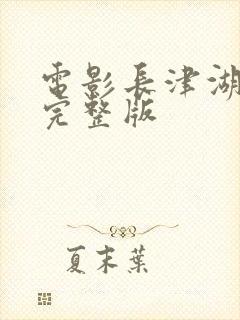 電影長津湖
完整版
夏末葉